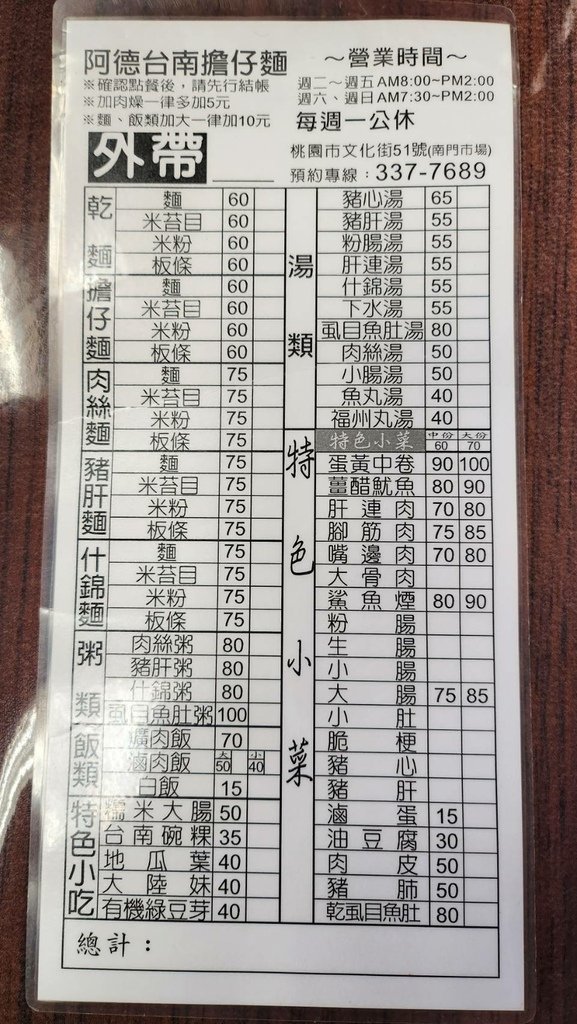 阿德台南擔仔麵
※確認點餐後，請先行結帳
※加肉燥一律多加5元
※麵、飯類加大一律加10元
外帶
～營業時間～
週二～週五AM8:00~PM2:00
週六、週日AM7:30~PM2:00
每週一公休
桃園市文化街51號(南門市場)
預約專線：337-7689
乾麵
麵 60
米苔目 60
米粉 60
板條 60
擔仔麵
麵 60
米苔目 60
米粉 60
板條 60
肉絲麵
麵 75
米苔目 75
米粉 75
板條 75
豬肝麵
麵 75
米苔目 75
米粉 75
板條 75
什錦麵
麵 75
米苔目 75
米粉 75
板條 75
粥類
肉絲粥 80
豬肝粥 80
什錦粥 80
虱目魚肚粥 100
飯類
爌肉飯 70
滷肉飯 大50 小40
白飯 15
特色小吃
糯米大腸 50
台南碗粿 35
地瓜葉 40
大陸妹 40
有機綠豆芽 40
湯類
豬心湯 65
豬肝湯 55
粉腸湯 55
肝連湯 55
什錦湯 55
下水湯 55
虱目魚肚湯 80
肉絲湯 50
小腸湯 50
魚丸湯 40
福州丸湯 40
特色小菜
特色小菜 中份60 大份70
蛋黃中卷 90 100
薑醋魷魚 80 90
肝連肉 70 80
腳筋肉 75 85
嘴邊肉 70 80
大骨肉
鯊魚煙 80 90
粉腸
生腸
小腸
大腸 75 85
小肚
脆梗
豬心
豬肝
滷蛋 15
油豆腐 30
肉皮 50
豬肺 50
乾虱目魚肚 80
總計：